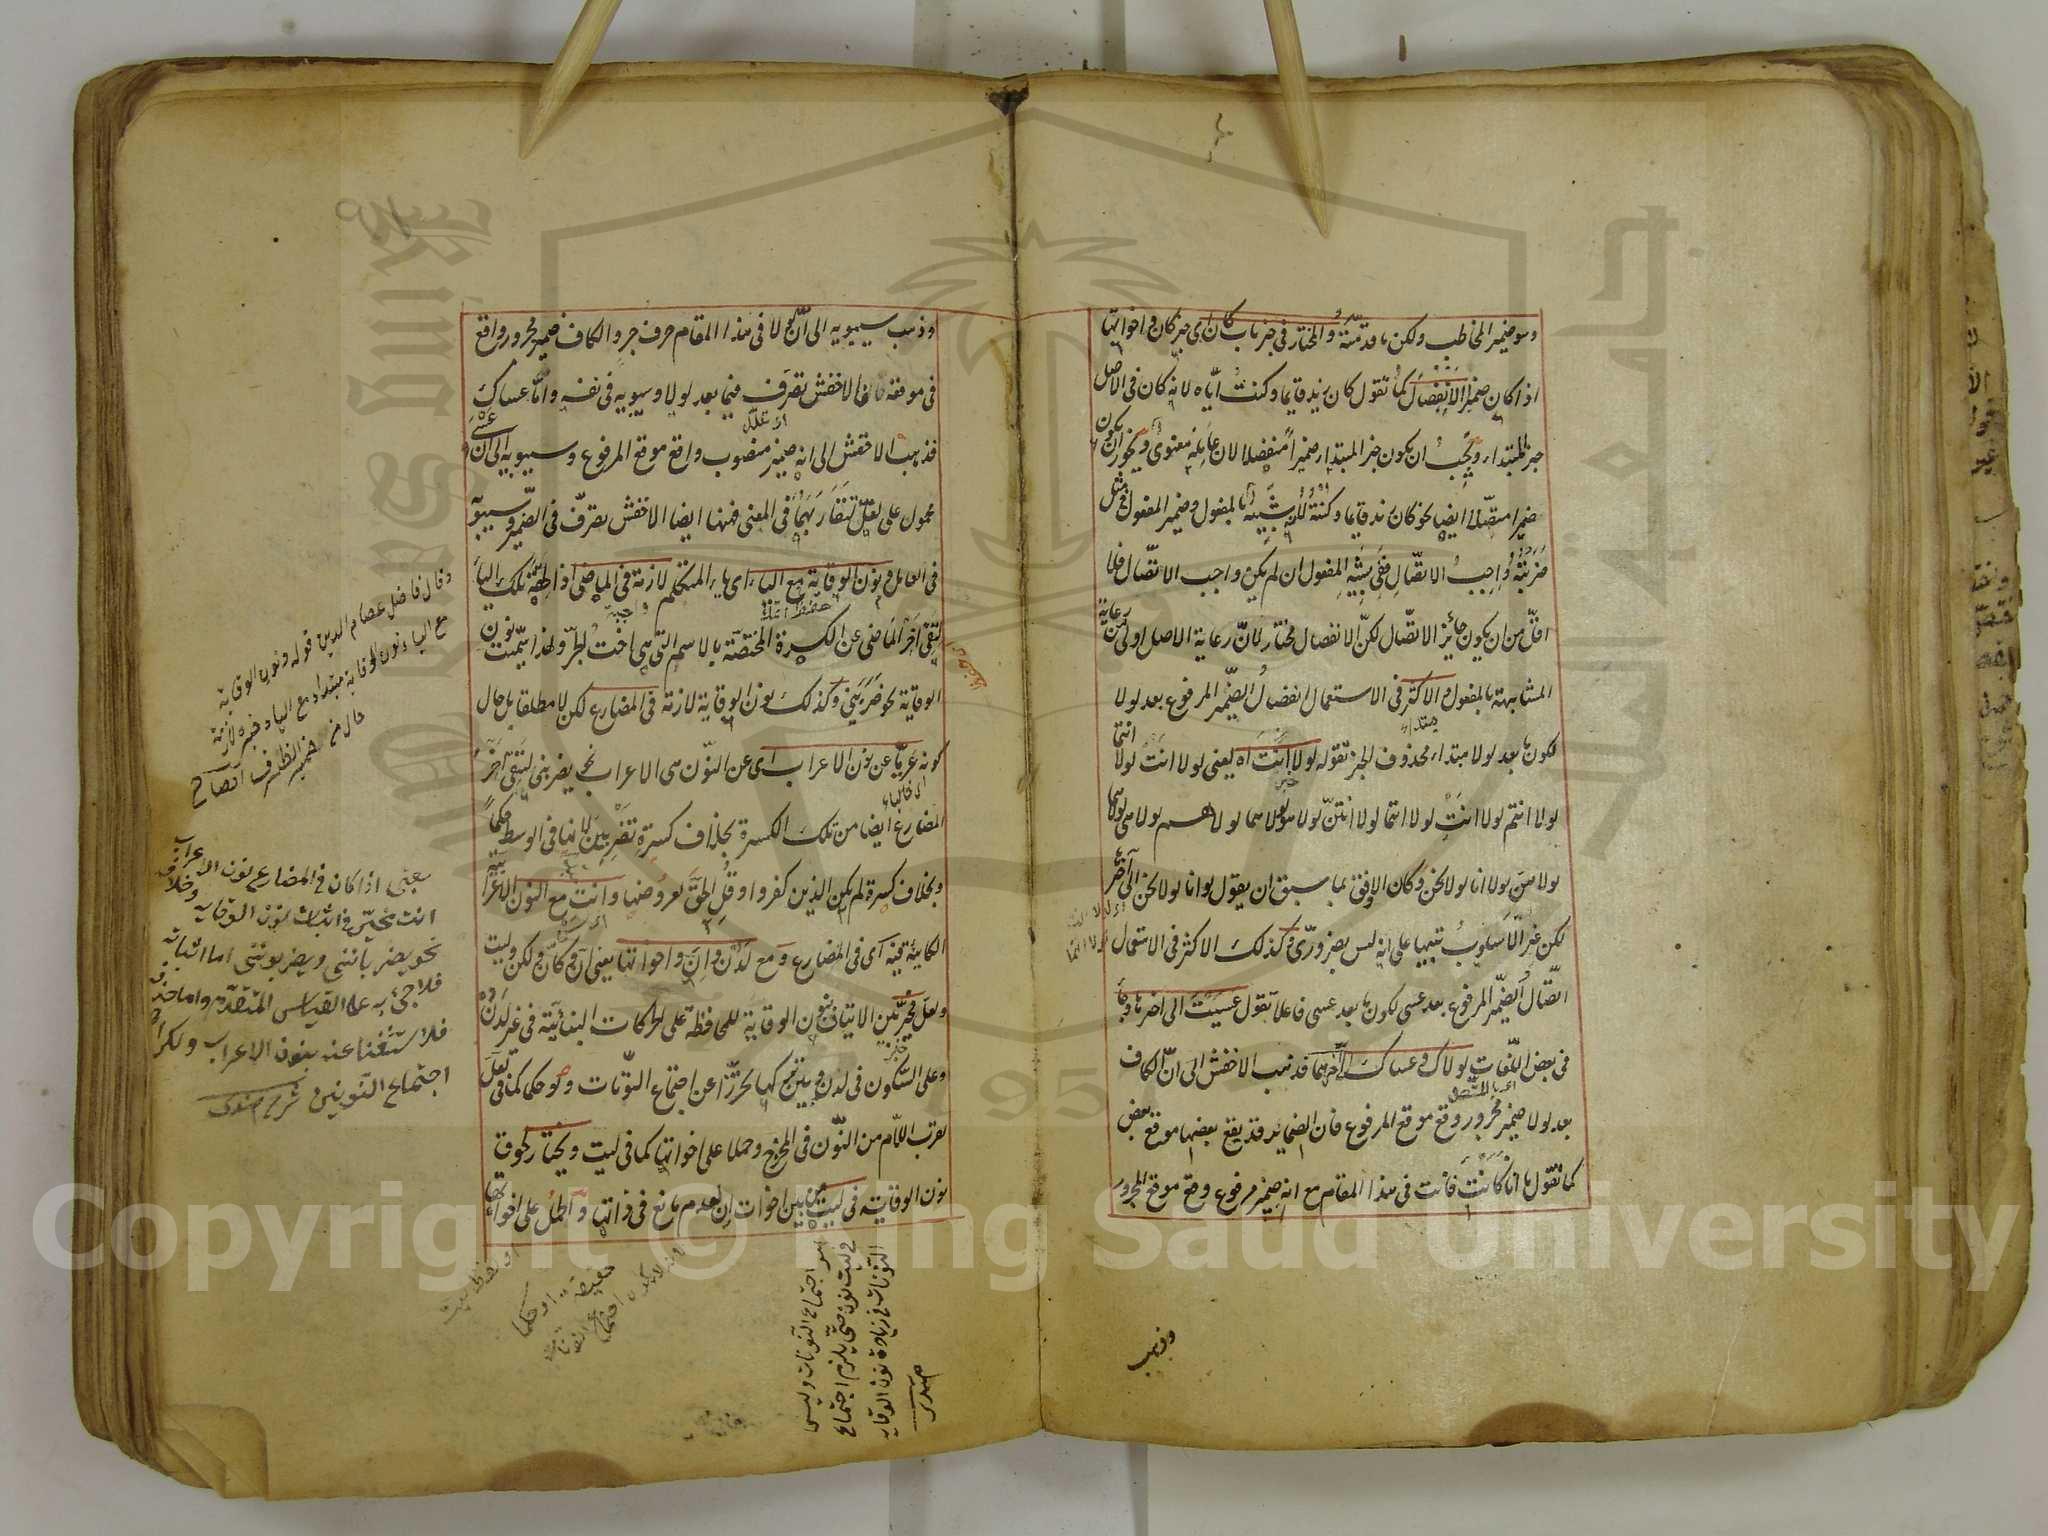 وهو ضمير المخاطب ولكن ما قدمته والمختار في خبر باب كان اى خبر كان واخواتها
اذا كان ضميرا الانفصال كما تقول كان زيد قايما وكنت اياه لانه كان في الاصل
خبر المبتداء ويجب ان يكون خبر المبتداء ضميرا منفصلا لان عامله معنوى ويجوز ان يكون
ضميرا متصلا ايضا نحو كان زيد قايما وكنته لانه شبيه بالمفعول وضمير المفعول في مثل
ضربته واجب الاتصال ففي شبيه المفعول ان لم يكن واجب الاتصال فلا
اقل من ان يكون جائز الاتصال لكن الانفصال مختار لان رعاية الاصل اولى من رعاية
المشابهة بالمفعول والاكثر في الاستعمال انفصال الضمير المرفوع بعد لولا
لكونها بعد لولا مبتداء محذوف الخبر تقول لولا انت اه يعني لولا انت لولا انتما
لولا انتم لولا انتِ لولا انتما لولا انتن لولا هو لولا هما لولا هم لولا هي لولا هما
لولا هن لولا انا لولا نحن وكان الاوفق بما سبق ان يقول لولا انا لولا نحن الى آخره
لكن غير الاسلوب تنبيها على انه ليس بضروري وكذلك الاكثر في الاستعمال
اتصال الضمير المرفوع بعد عسى لكونها بعد عسى فاعلا تقول عسيت الى اخرها وجاء
في بعض اللغات لولاك وعساك الى اخرهما فذهب الاخفش الى ان الكاف
بعد لولا ضمير مجرور وقع موقع المرفوع فان الضمائر قد يقع بعضها موقع بعض
كما تقول ما انا كانت فانت في هذا المقام مع انه ضمير مرفوع وقع موقع المجرور
وذهب
وذهب سيبويه الى ان لولا في هذا المقام حرف جر والكاف ضمير مجرور واقع
في موقعه فالاخفش تصرف فيما بعد لولا وسيبويه في نفسه واما عساك
فذهب الاخفش الى انه ضمير منصوب واقع موقع المرفوع وسيبويه الى ان عسى
محمول على لعل لتقاربهما في المعنى فههنا ايضا الاخفش يصرف في الضمير وسيبويه
في العامل ونون الوقاية مع الياء اى ياء المتكلم لازمة في الماضى اذا لحقته تلك الياء
لتقى آخر الماضى عن الكسرة المختصة بالاسم التى هي اخت الجر ولهذا سميت نون
الوقاية نحو ضربني وكذلك نون الوقاية لازمة في المضارع لكن لا مطلقا بل حال
كونه عريا عن نون الاعراب اى عن النون هى الاعراب نحو يضربنى لتقى آخر
المضارع ايضا من تلك الكسرة بخلاف كسرة تضربين لانها في الوسط حكما
وبخلاف كسرة لم يكن الذين كفروا وقل الحق لعروضها وانت مع النون الاعرابية
الكاينة فيه اى في المضارع ومع لدن وان واخواتها يعنى ان وكان ولكن وليت
ولعل مخير بين الاتيان بنون الوقاية للمحافظة على الحركات البنائية في غير لدن
وعلى السكون في لدن وبين تركها تحرزا عن اجتماع النونات ولو حكما كما في لعل
لقرب اللام من النون في المخرج وحملا على اخواتها كما في ليت ويختار لحوق
نون الوقاية في ليت من بين اخوات ان لعدم مانع في ذاتها والحمل على اخواتها
وقال فاضل عصام الدين قوله ونون الوقاية
مع الياء نون الوقاية مبتداء مع الياء وخبره لازمة
حال من ضمير الظرف
يعنى اذا كان في المضارع نون الاعراب
انت مخير في اثبات نون الوقاية وخلافه
نحو يضربانني ويضربونني اما اثباته
فلاجئ به على القياس المتقدم واما حذف
فلاستغنا عنه بنون الاعراب ولكراهة
اجتماع النونين
هو اجتماع النونات وليس
في ليت نون حتى يلزم اجتماع
النونات في زيادة نون الوقاية
Copyright © King Saud University
1957